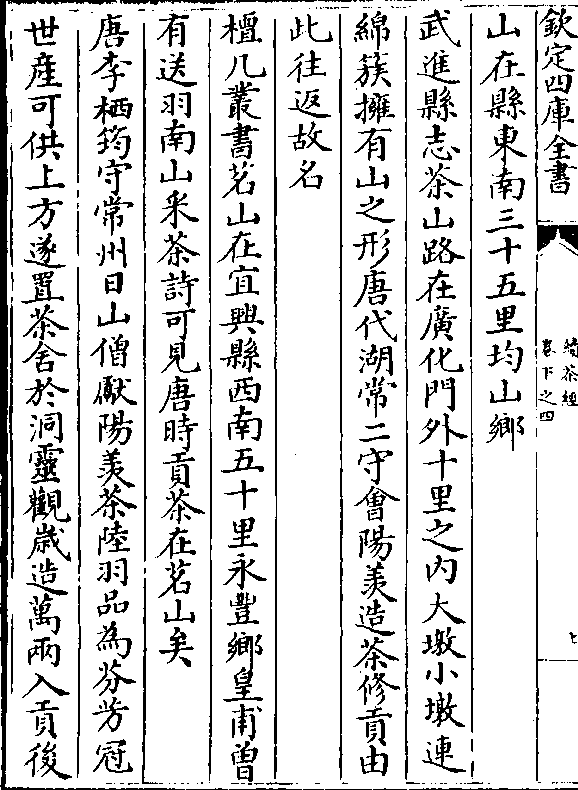 欽定四庫全書
續茶經
卷下之四
七
山在縣東南三十五里均山鄉
武進縣志茶山路在廣化門外十里之内大墩小墩連
綿簇擁有山之形唐代湖常二守會陽羡造茶修貢由
此往返故名
檀几叢書茗山在宜興縣西南五十里永豐鄉皇甫曽
有送羽南山采茶詩可見唐時貢茶在茗山矣
唐李栖筠守常州日山僧獻陽羡茶陸羽品為芬芳冠
世産可供上方遂置茶舍於洞靈觀歳造萬兩入貢後